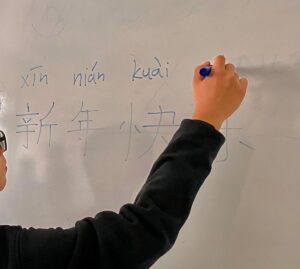 xīn nián kuài
新年快乐